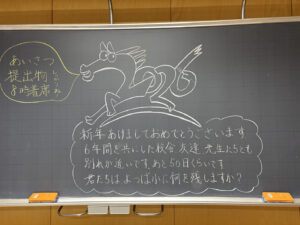 あいさつ
提出物
8時着席
2026
新年あけましておめでとうございます
6年間を共にした校舎 友達 先生たちとも
別れが近いです。あと50日くらいです
君たちはよつば小に何を残しますか?